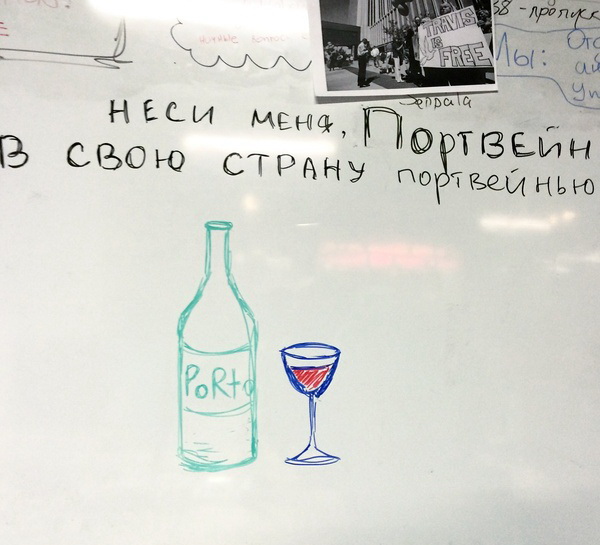 38 - пропуск
TRAVIS
IS
FREE
Seppala
НЕСИ МЕНЯ, ПОРТВЕЙН
В СВОЮ СТРАНУ ПОРТВЕЙНЬЮ
PoRto